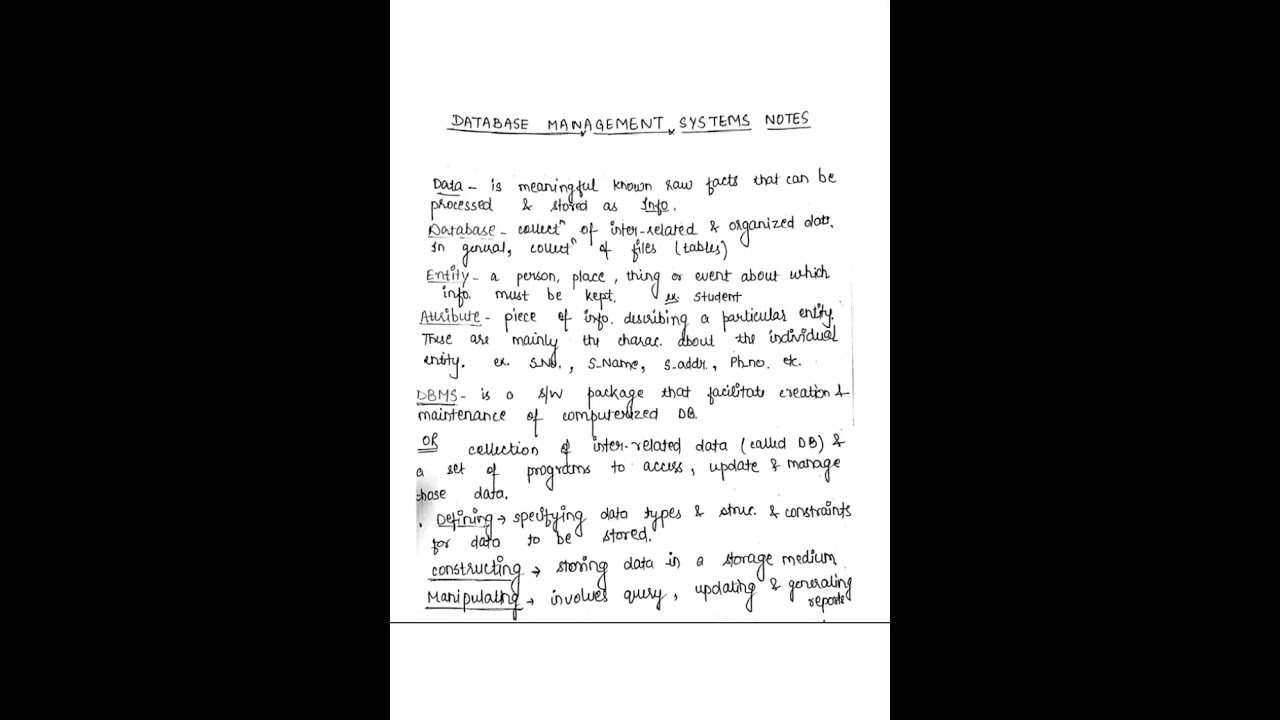 DATABASE MANAGEMENT SYSTEMS NOTES
Data - is meaningful known raw facts that can be
processed & stored as Info.
Database - collectⁿ of inter-related & organized data.
In general, collectⁿ of files (tables)
Entity - a person, place, thing or event about which
info. must be kept. ex. Student
Attribute - piece of info. describing a particular entity.
These are mainly the charac. about the individual
entity. ex. S.No., S_Name, S_addr., Ph.no. etc.
DBMS - is a s/w package that facilitate creation &
maintenance of computerized DB.
OR collection of inter-related data (called DB) &
a set of programs to access, update & manage
those data.
. Defining → specifying data types & struc. & constraints
for data to be stored.
Constructing → storing data in a storage medium
Manipulating → involves query, updating & generating
reports